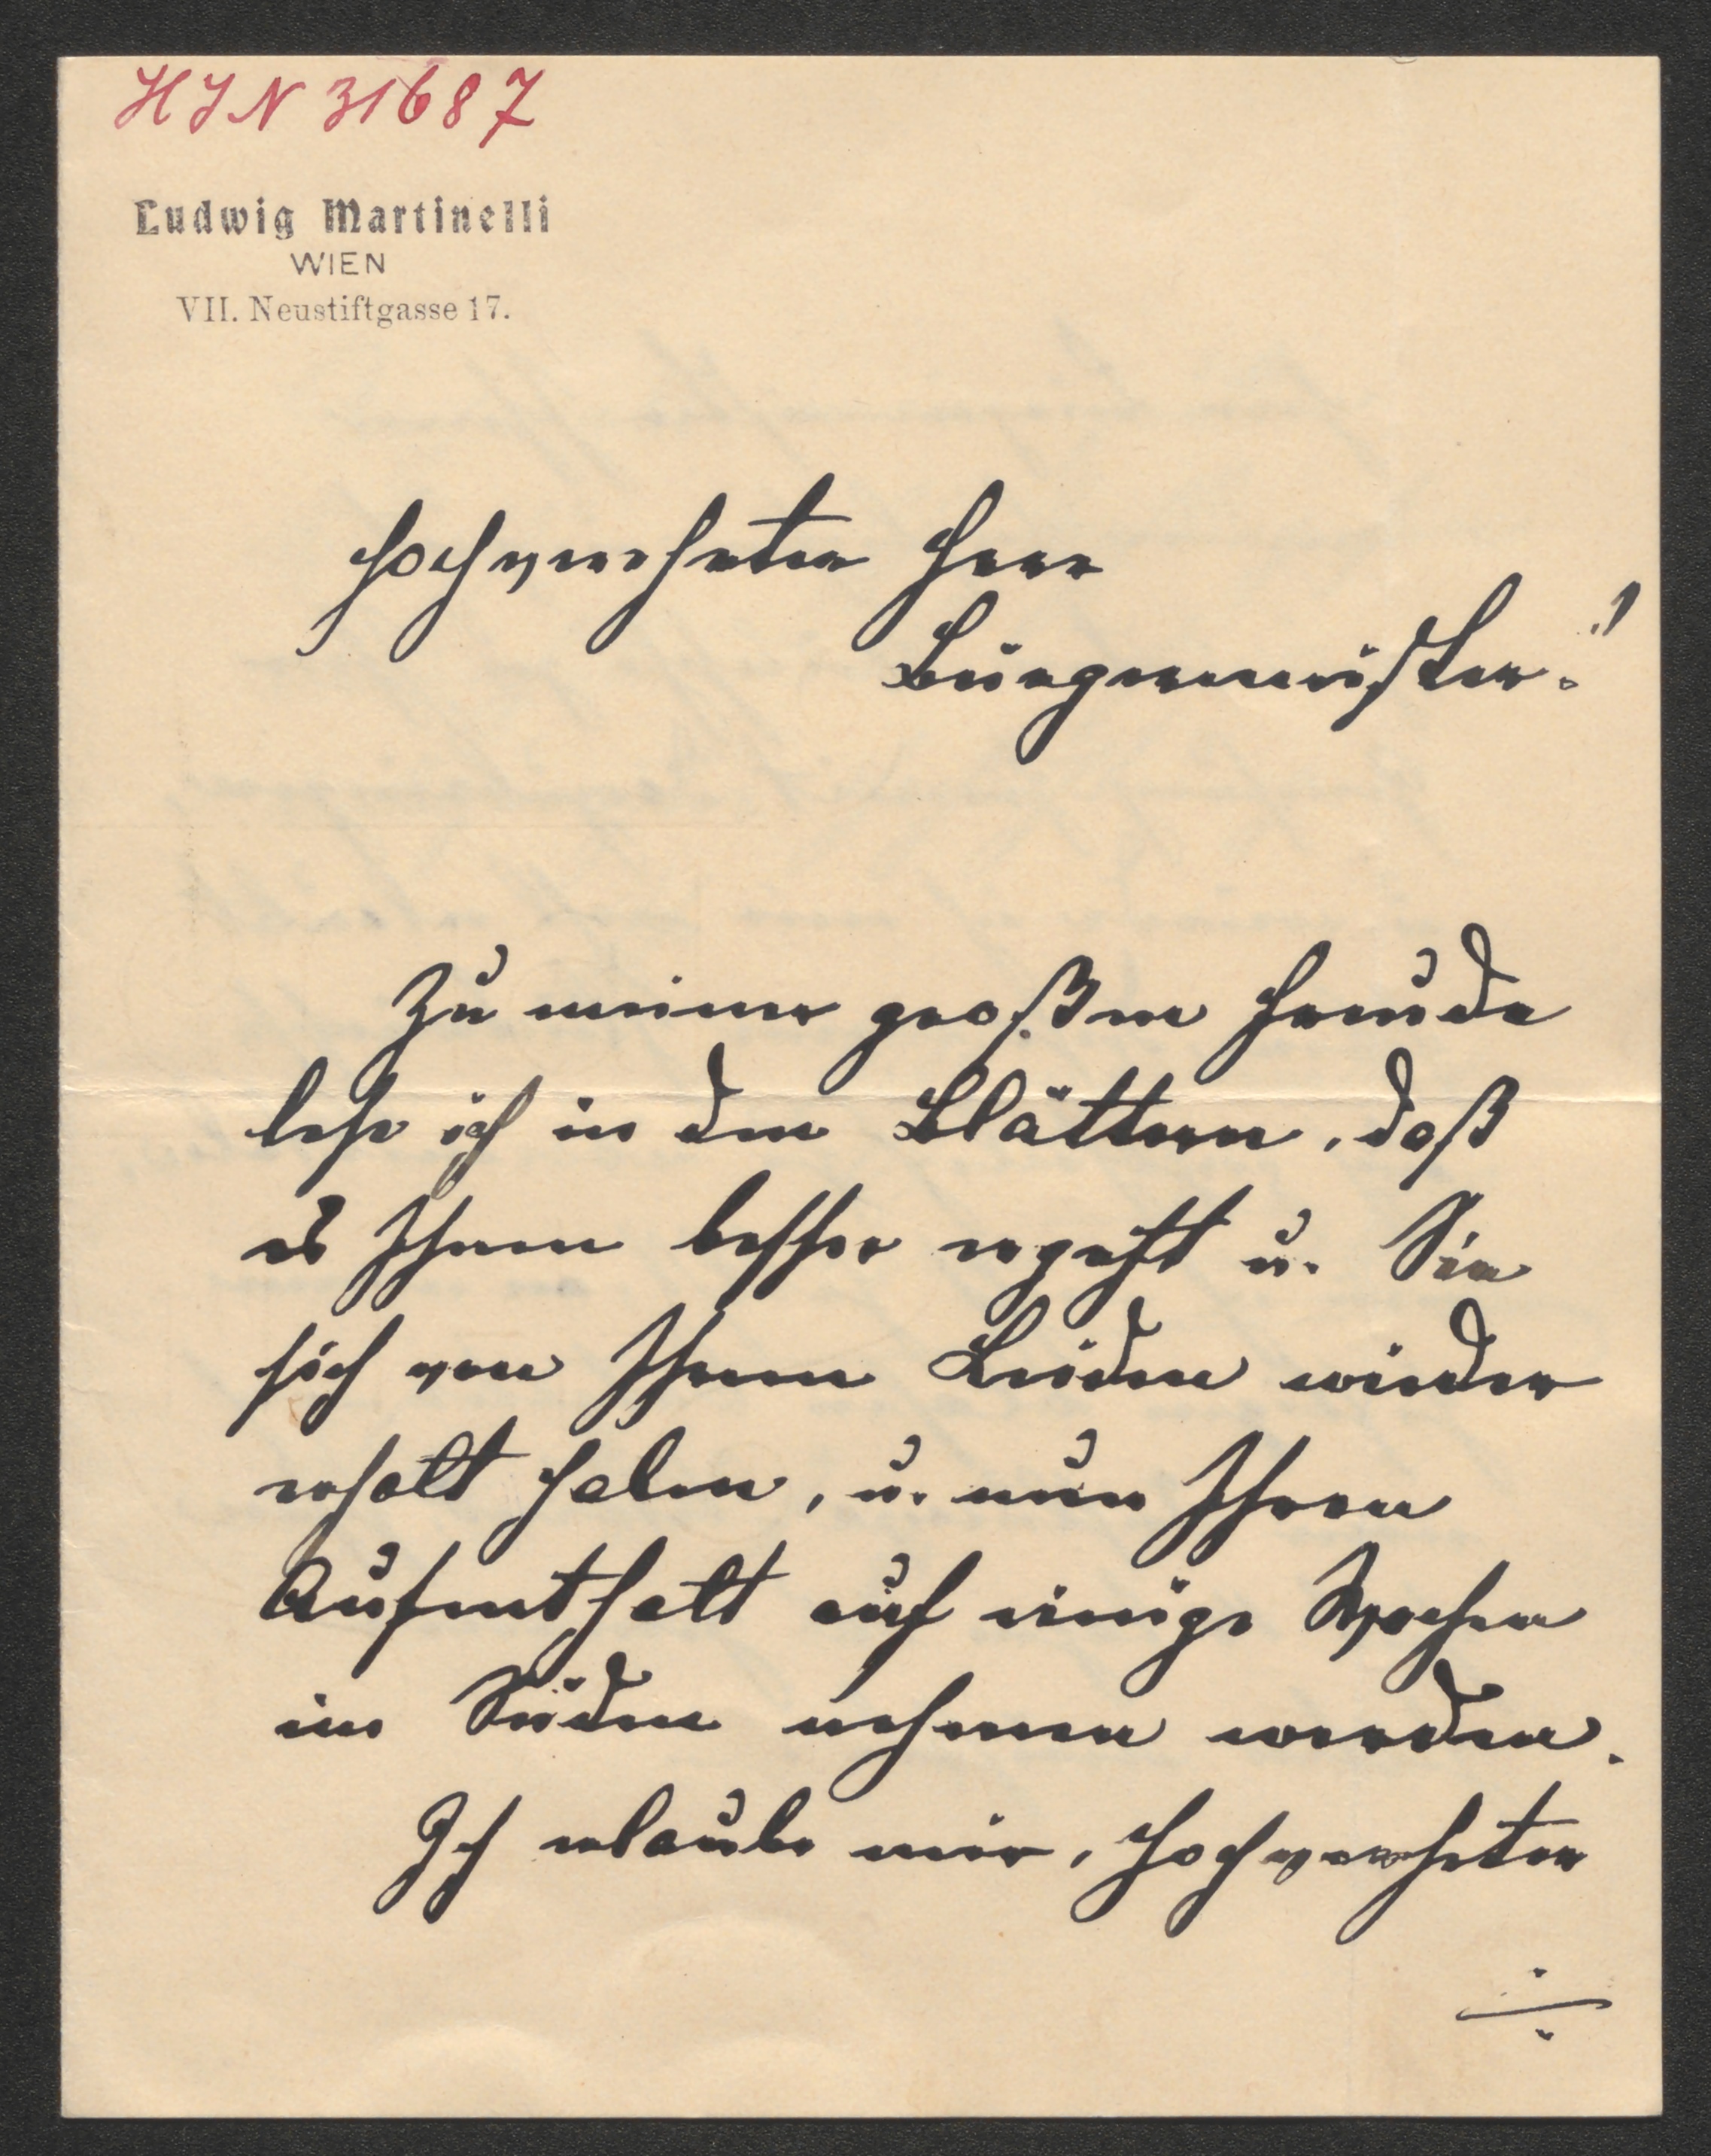 HIN 31687
Ludwig Martinelli
WIEN
VII. Neustiftgasse 17.
Hochverehrter Herr
Bürgermeister!
Zu meiner großen Freude
lese ich in den Blättern, daß
es Ihnen besser ergeht u. Sie
sich von Ihrem Leiden wieder
erholt haben, u. nun Ihren
Aufenthalt auf einige Wochen
im Süden nehmen werden.
Ich erlaube mir, hochverehrter